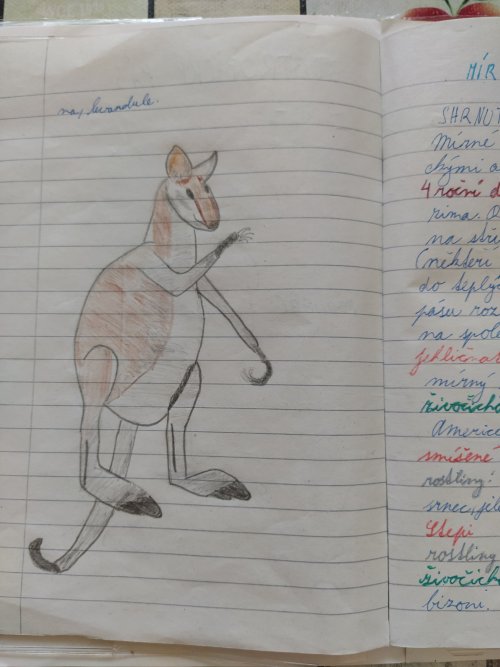 např. levandule.
MÍR
SHRNUT
Mírné
chými a
4 roční d
rima. O
na stří
(někteří
do teplý
pásu roz
na spole
jehlič. a
mírný
živočich
Americe
smíšené
rostliny:
srnec, jel
Stepi
rostliny
živočich
bizoni.